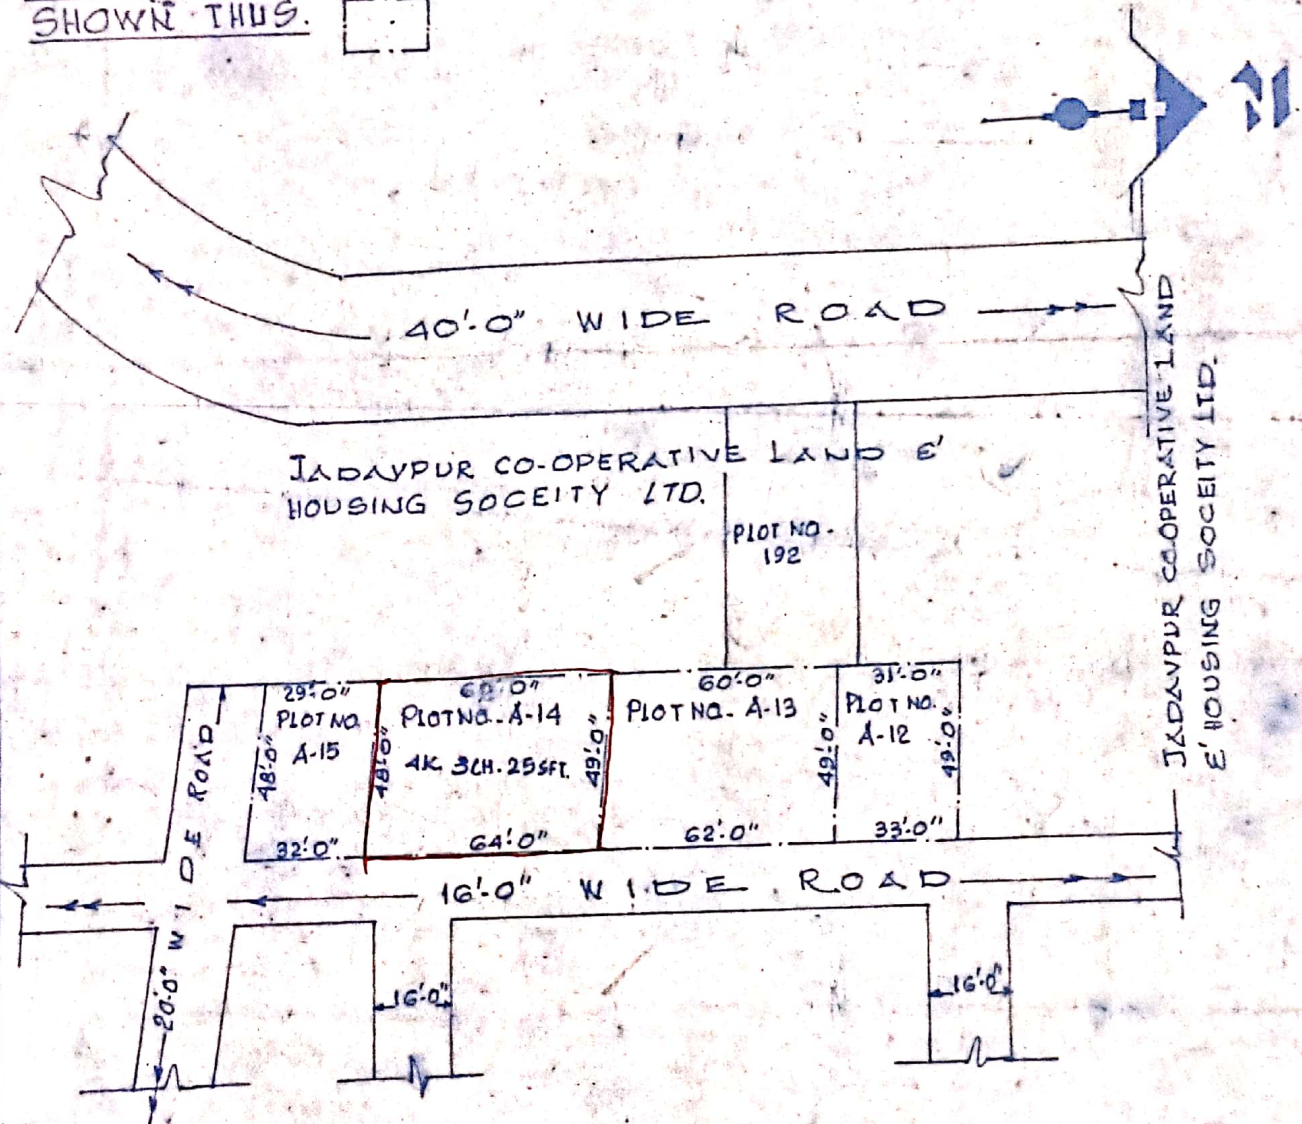 SHOWN THUS.
N
40'-0" WIDE ROAD
JADAVPUR CO-OPERATIVE LAND &
HOUSING SOCEITY LTD.
JADAVPUR CO-OPERATIVE LAND
& HOUSING SOCEITY LTD.
PLOT NO.
192
29'-0"
PLOT NO.
A-15
48'-0"
32'-0"
PLOT NO. A-14
4K. 3CH. 25SFT.
48'-0"
49'-0"
64'-0"
60'-0"
PLOT NO. A-13
62'-0"
49'-0"
31'-0"
PLOT NO.
A-12
49'-0"
33'-0"
16'-0" WIDE ROAD
20'-0" WIDE ROAD
16'-0"
16'-0"